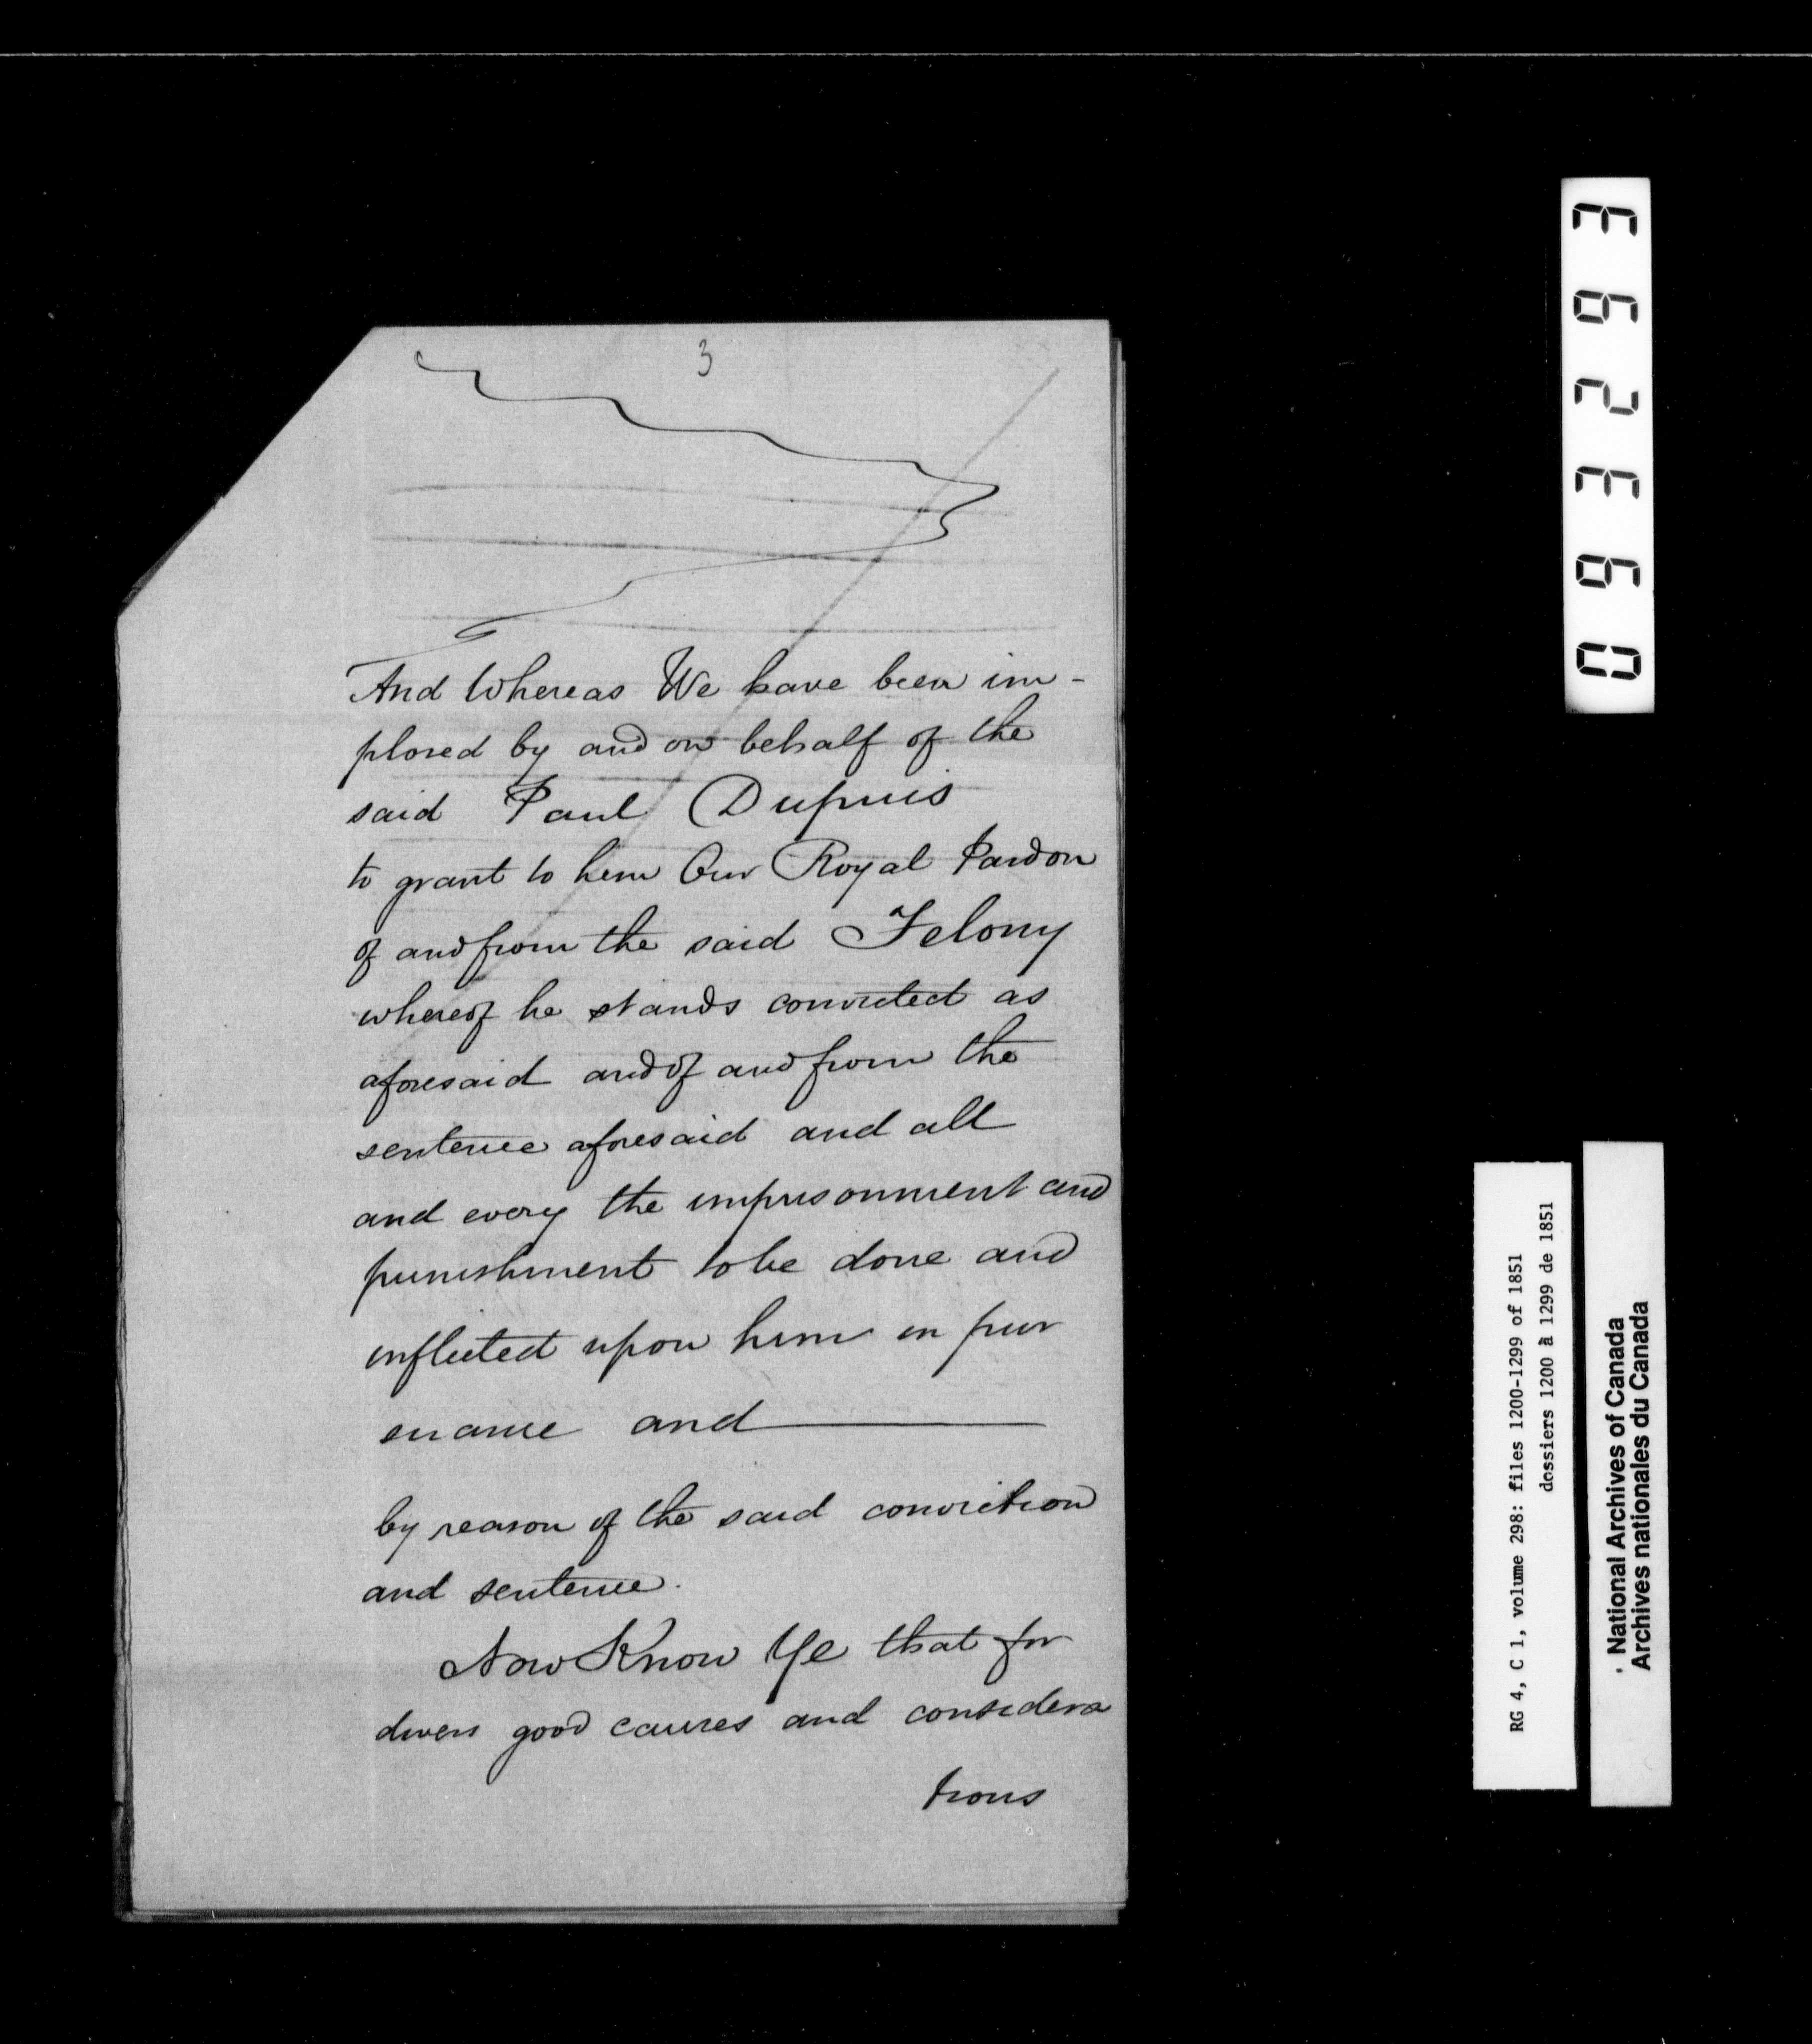 3
And Whereas We have been im-
plored by and on behalf of the
said Paul Dupuis
to grant to him Our Royal Pardon
of and from the said Felony
whereof he stands convicted as
aforesaid and of and from the
sentence aforesaid and all
and every the imprisonment and
punishment to be done and
inflicted upon him in pur
suance and
by reason of the said conviction
and sentence.
Now Know Ye that for
divers good causes and considera
tions
093293
RG 4, C 1, volume 298: files 1200-1299 of 1851
dossiers 1200 à 1299 de 1851
National Archives of Canada
Archives nationales du Canada